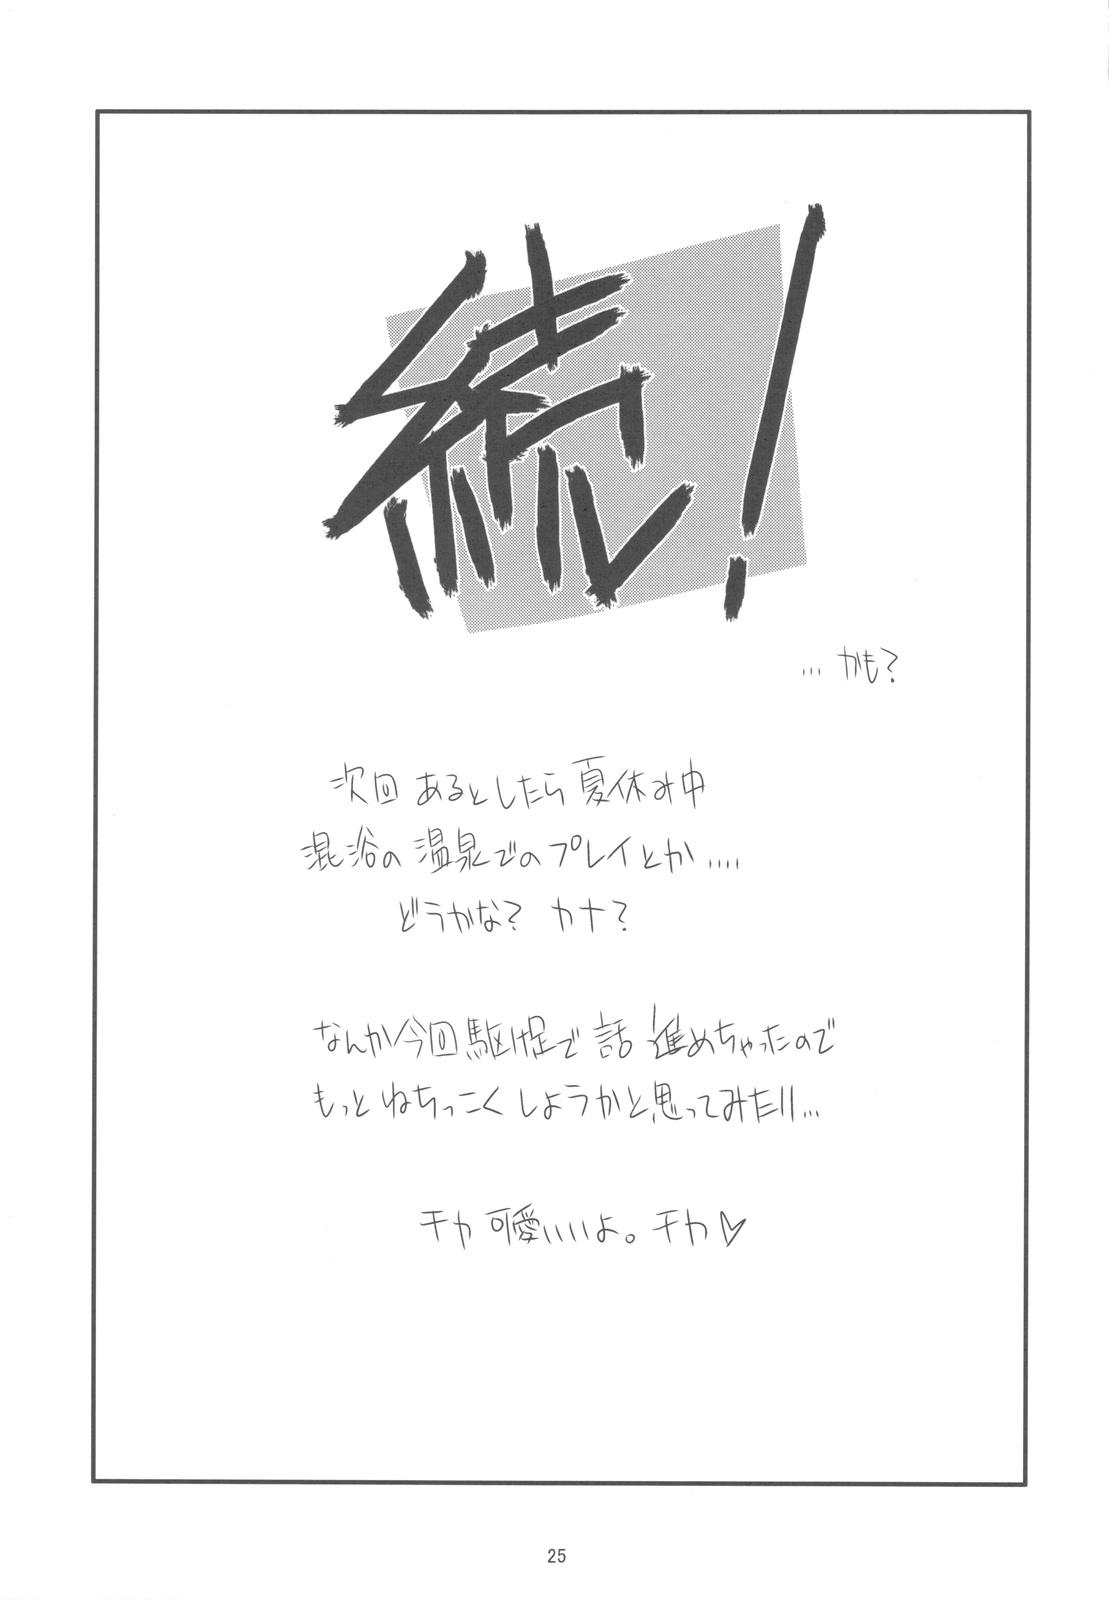 続!
… かも?
次回 あるとしたら 夏休み中
混浴の 温泉でのプレイとか....
どうかな? カナ?
なんか今回駆け足で 話 進めちゃったので
もっと ねちっこく しようかと思ってみたり…
チカ 可愛いいよ。チカ♡
25